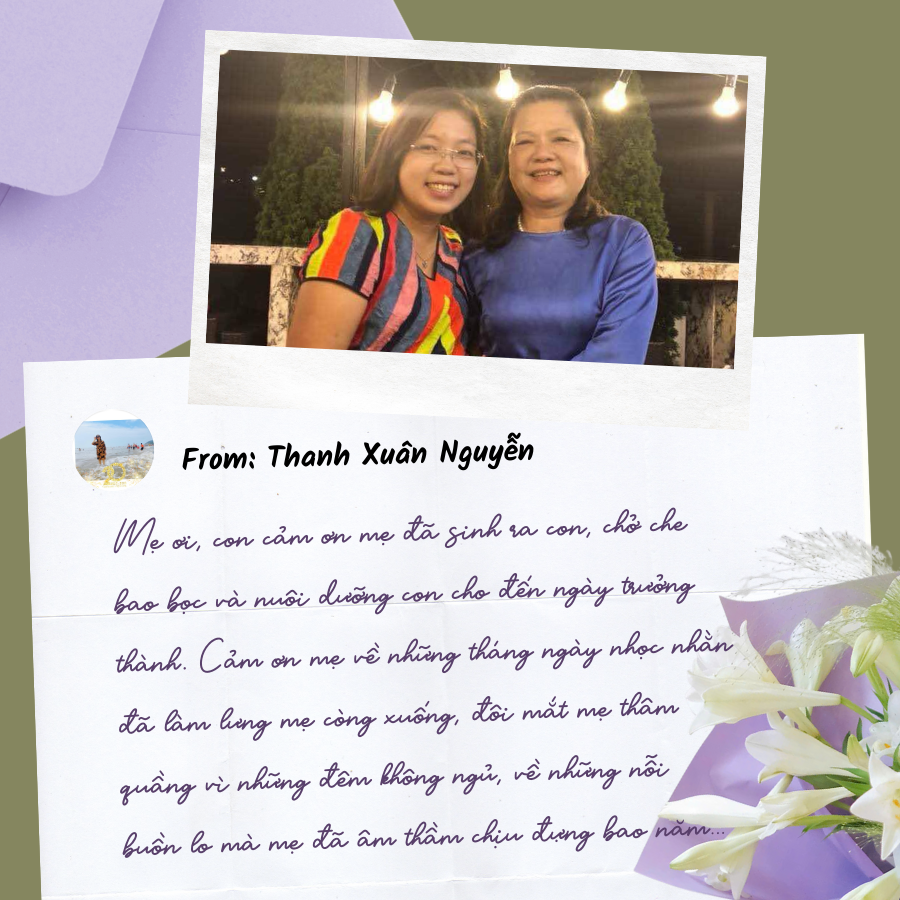 From: Thanh Xuân Nguyễn
Mẹ ơi, con cảm ơn mẹ đã sinh ra con, chở che
bao bọc và nuôi dưỡng con cho đến ngày trưởng
thành. Cảm ơn mẹ về những tháng ngày nhọc nhằn
đã làm lưng mẹ còng xuống, đôi mắt mẹ thâm
quầng vì những đêm không ngủ, về những nỗi
buồn lo mà mẹ đã âm thầm chịu đựng bao năm...